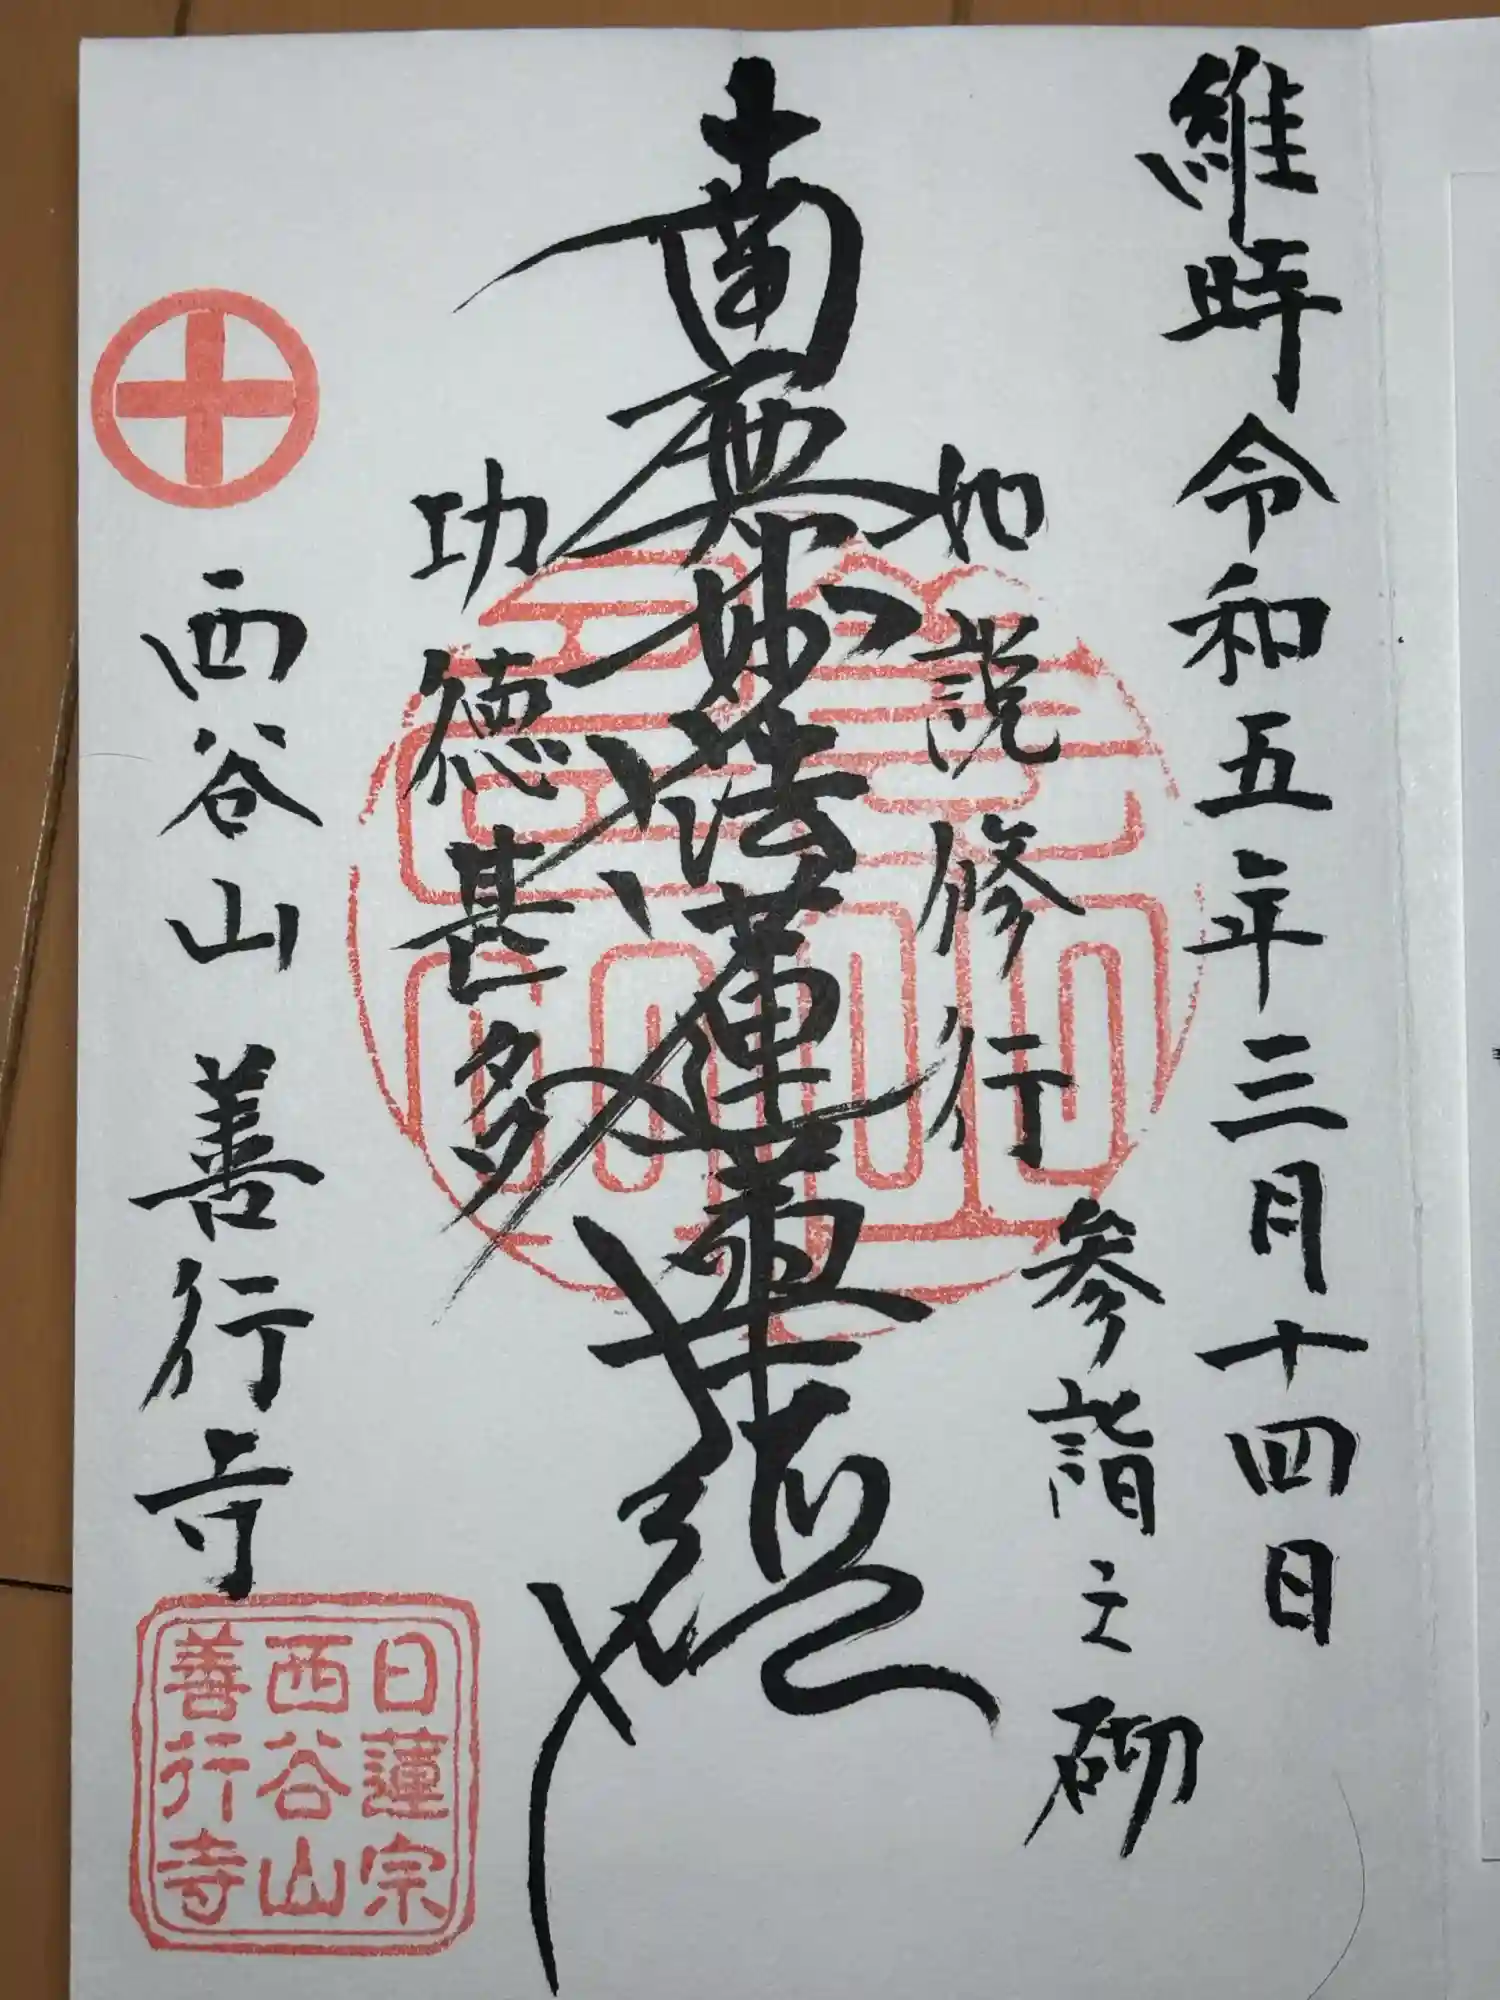 維時令和五年三月十四日
参詣之砌
如説修行
南無妙法蓮華経
功徳甚多
西谷山善行寺
日蓮宗
西谷山
善行寺